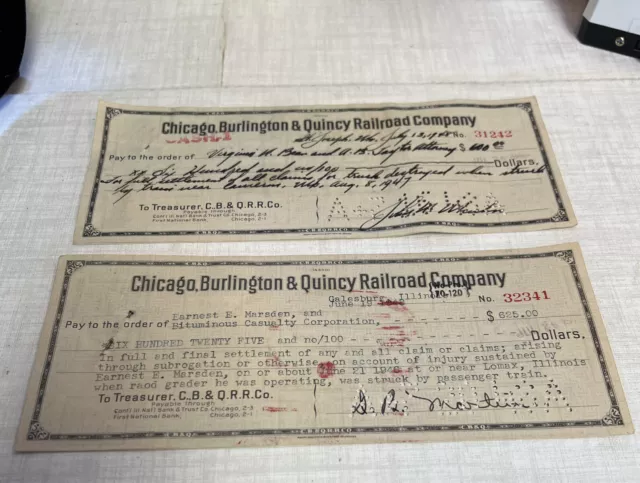 Chicago, Burlington & Quincy Railroad Company
St. Joseph, Mo. July 12, 1948 No. 31242
Pay to the order of Virginia H. Bean and A. B. Taylor Attorney $ 600 00
Six Hundred and no/100 Dollars.
In full settlement of all claims for truck destroyed when struck
by train near Cameron, Mo. Aug. 8, 1947
To Treasurer, C. B. & Q. R. R. Co.
Payable through
Contl Ill Natl Bank & Trust Co Chicago, 2-3
First National Bank, Chicago, 2-1
C.B.&Q.R.R.CO.
Chicago, Burlington & Quincy Railroad Company
Galesburg, Illinois
June 18 No. 32341
Earnest E. Marsden, and
Pay to the order of Bituminous Casualty Corporation, $ 625.00
SIX HUNDRED TWENTY FIVE and no/100 Dollars.
In full and final settlement of any and all claim or claims; arising
through subrogation or otherwise, on account of injury sustained by
Earnest E. Marsden, on or about June 21 194 at or near Lomax, Illinois
when raod grader he was operating, was struck by passenger train.
To Treasurer, C. B. & Q. R. R. Co.
Payable through
Contl Ill Natl Bank & Trust Co. Chicago, 2-3
First National Bank, Chicago, 2-1